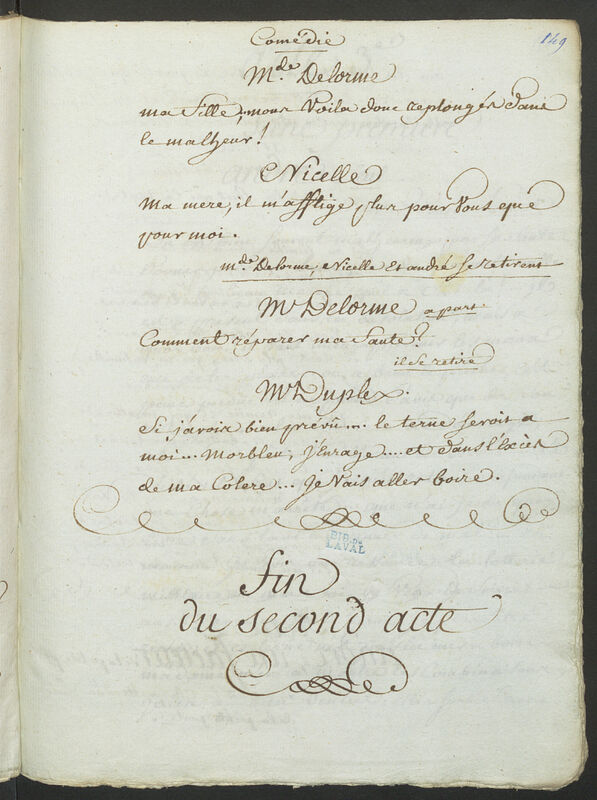 Comédie
149
Mde Delorme
ma fille, nous voila donc replongés dans
le malheur!
Nicelle
Ma mere, il m'afflige plus pour vous que
pour moi.
mde Delorme, Nicelle et andré se retirent
Mr Delorme a part
Comment réparer ma faute?
il se retire
Mr Duplex.
Si j'avois bien prévû... le terne seroit a
moi... morbleu, j'enrage.... et dans l'Excès
de ma Colere... je vais aller boire.
BIB. DE
LAVAL
fin
du second acte